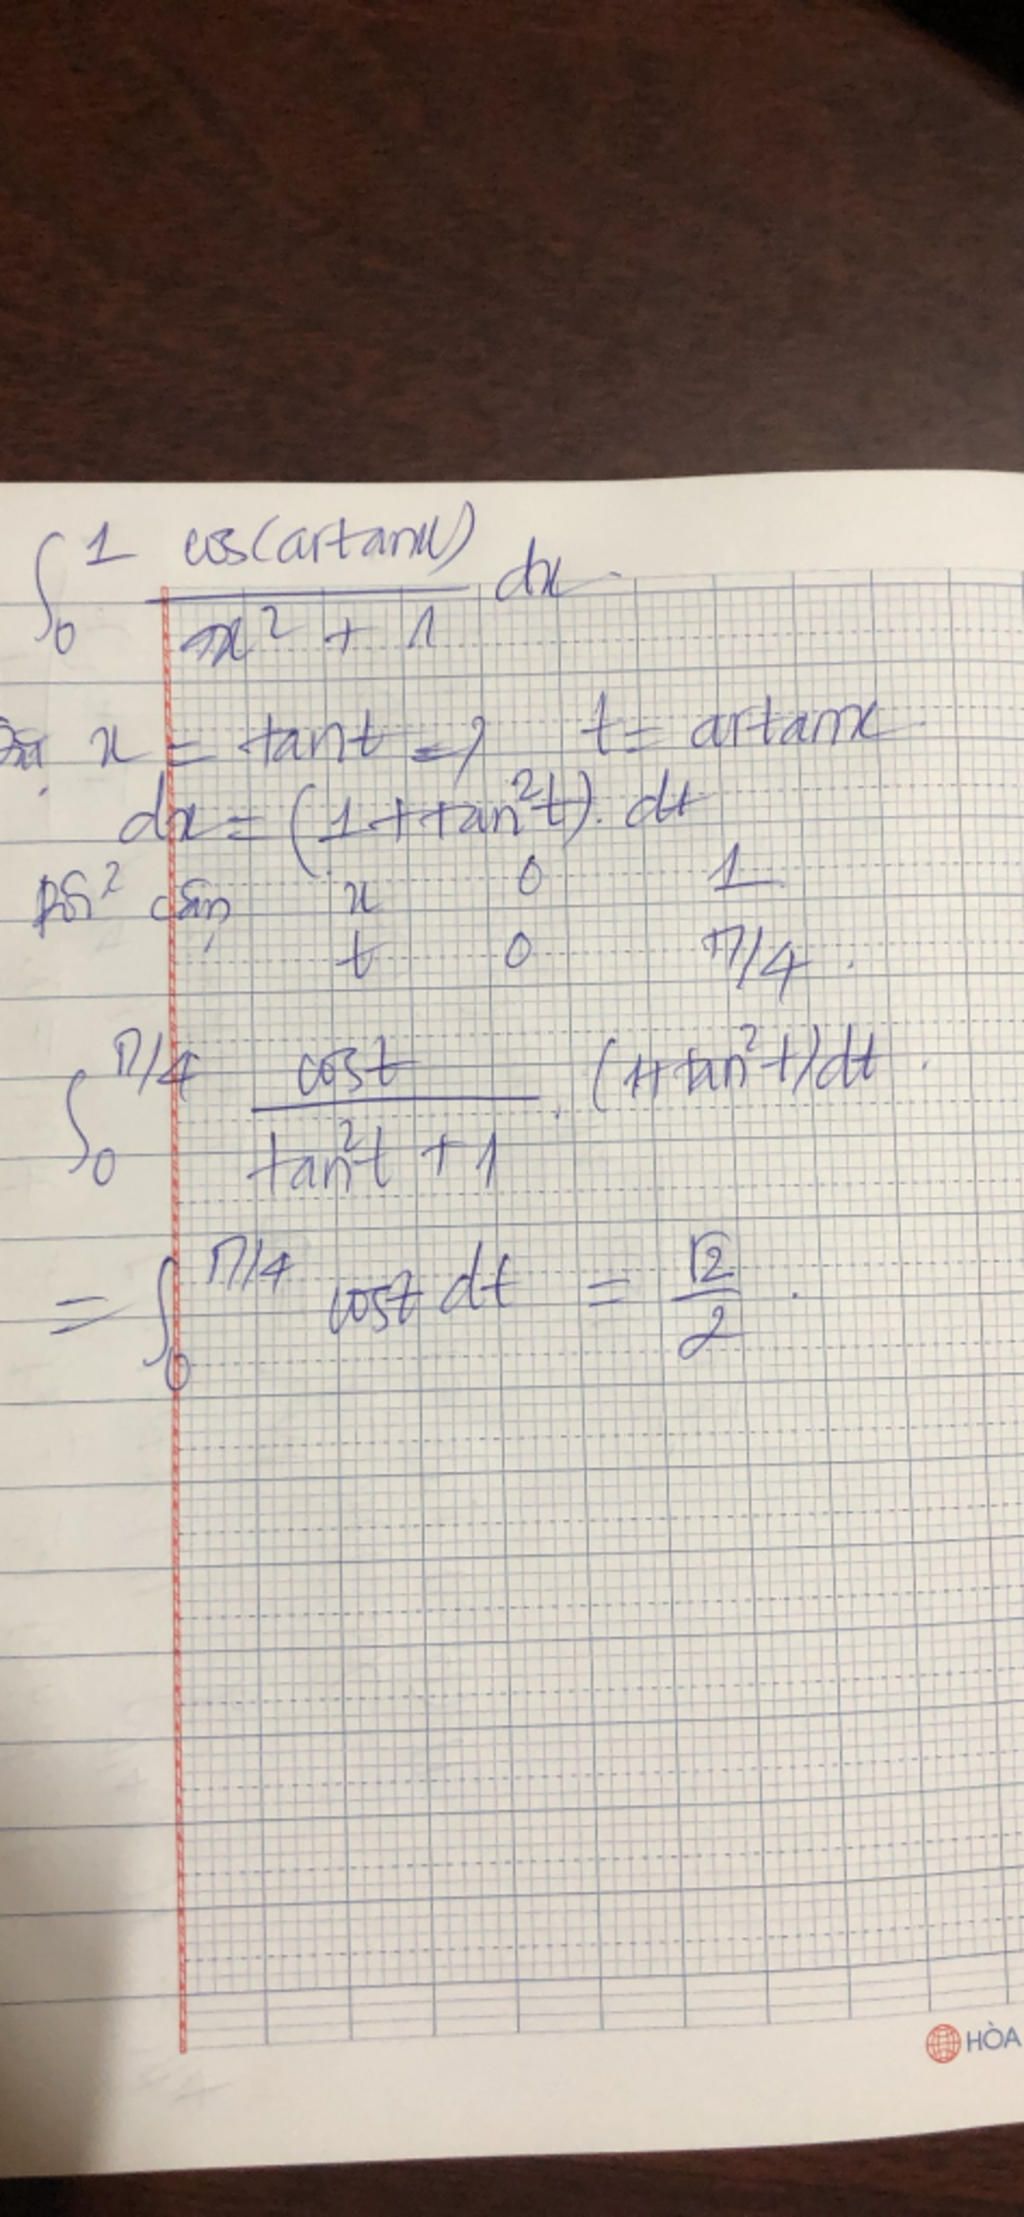 ∫₀¹ cos(artanx) / x² + 1 dx
x = tant => t = artanx
dx = (1 + tan²t). dt
Đổi cận x 0 1
t 0 π/4.
∫₀^π/4 cost / tan²t + 1 . (1+tan²t)dt.
= ∫₀^π/4 cost dt = √2/2.
HÒA